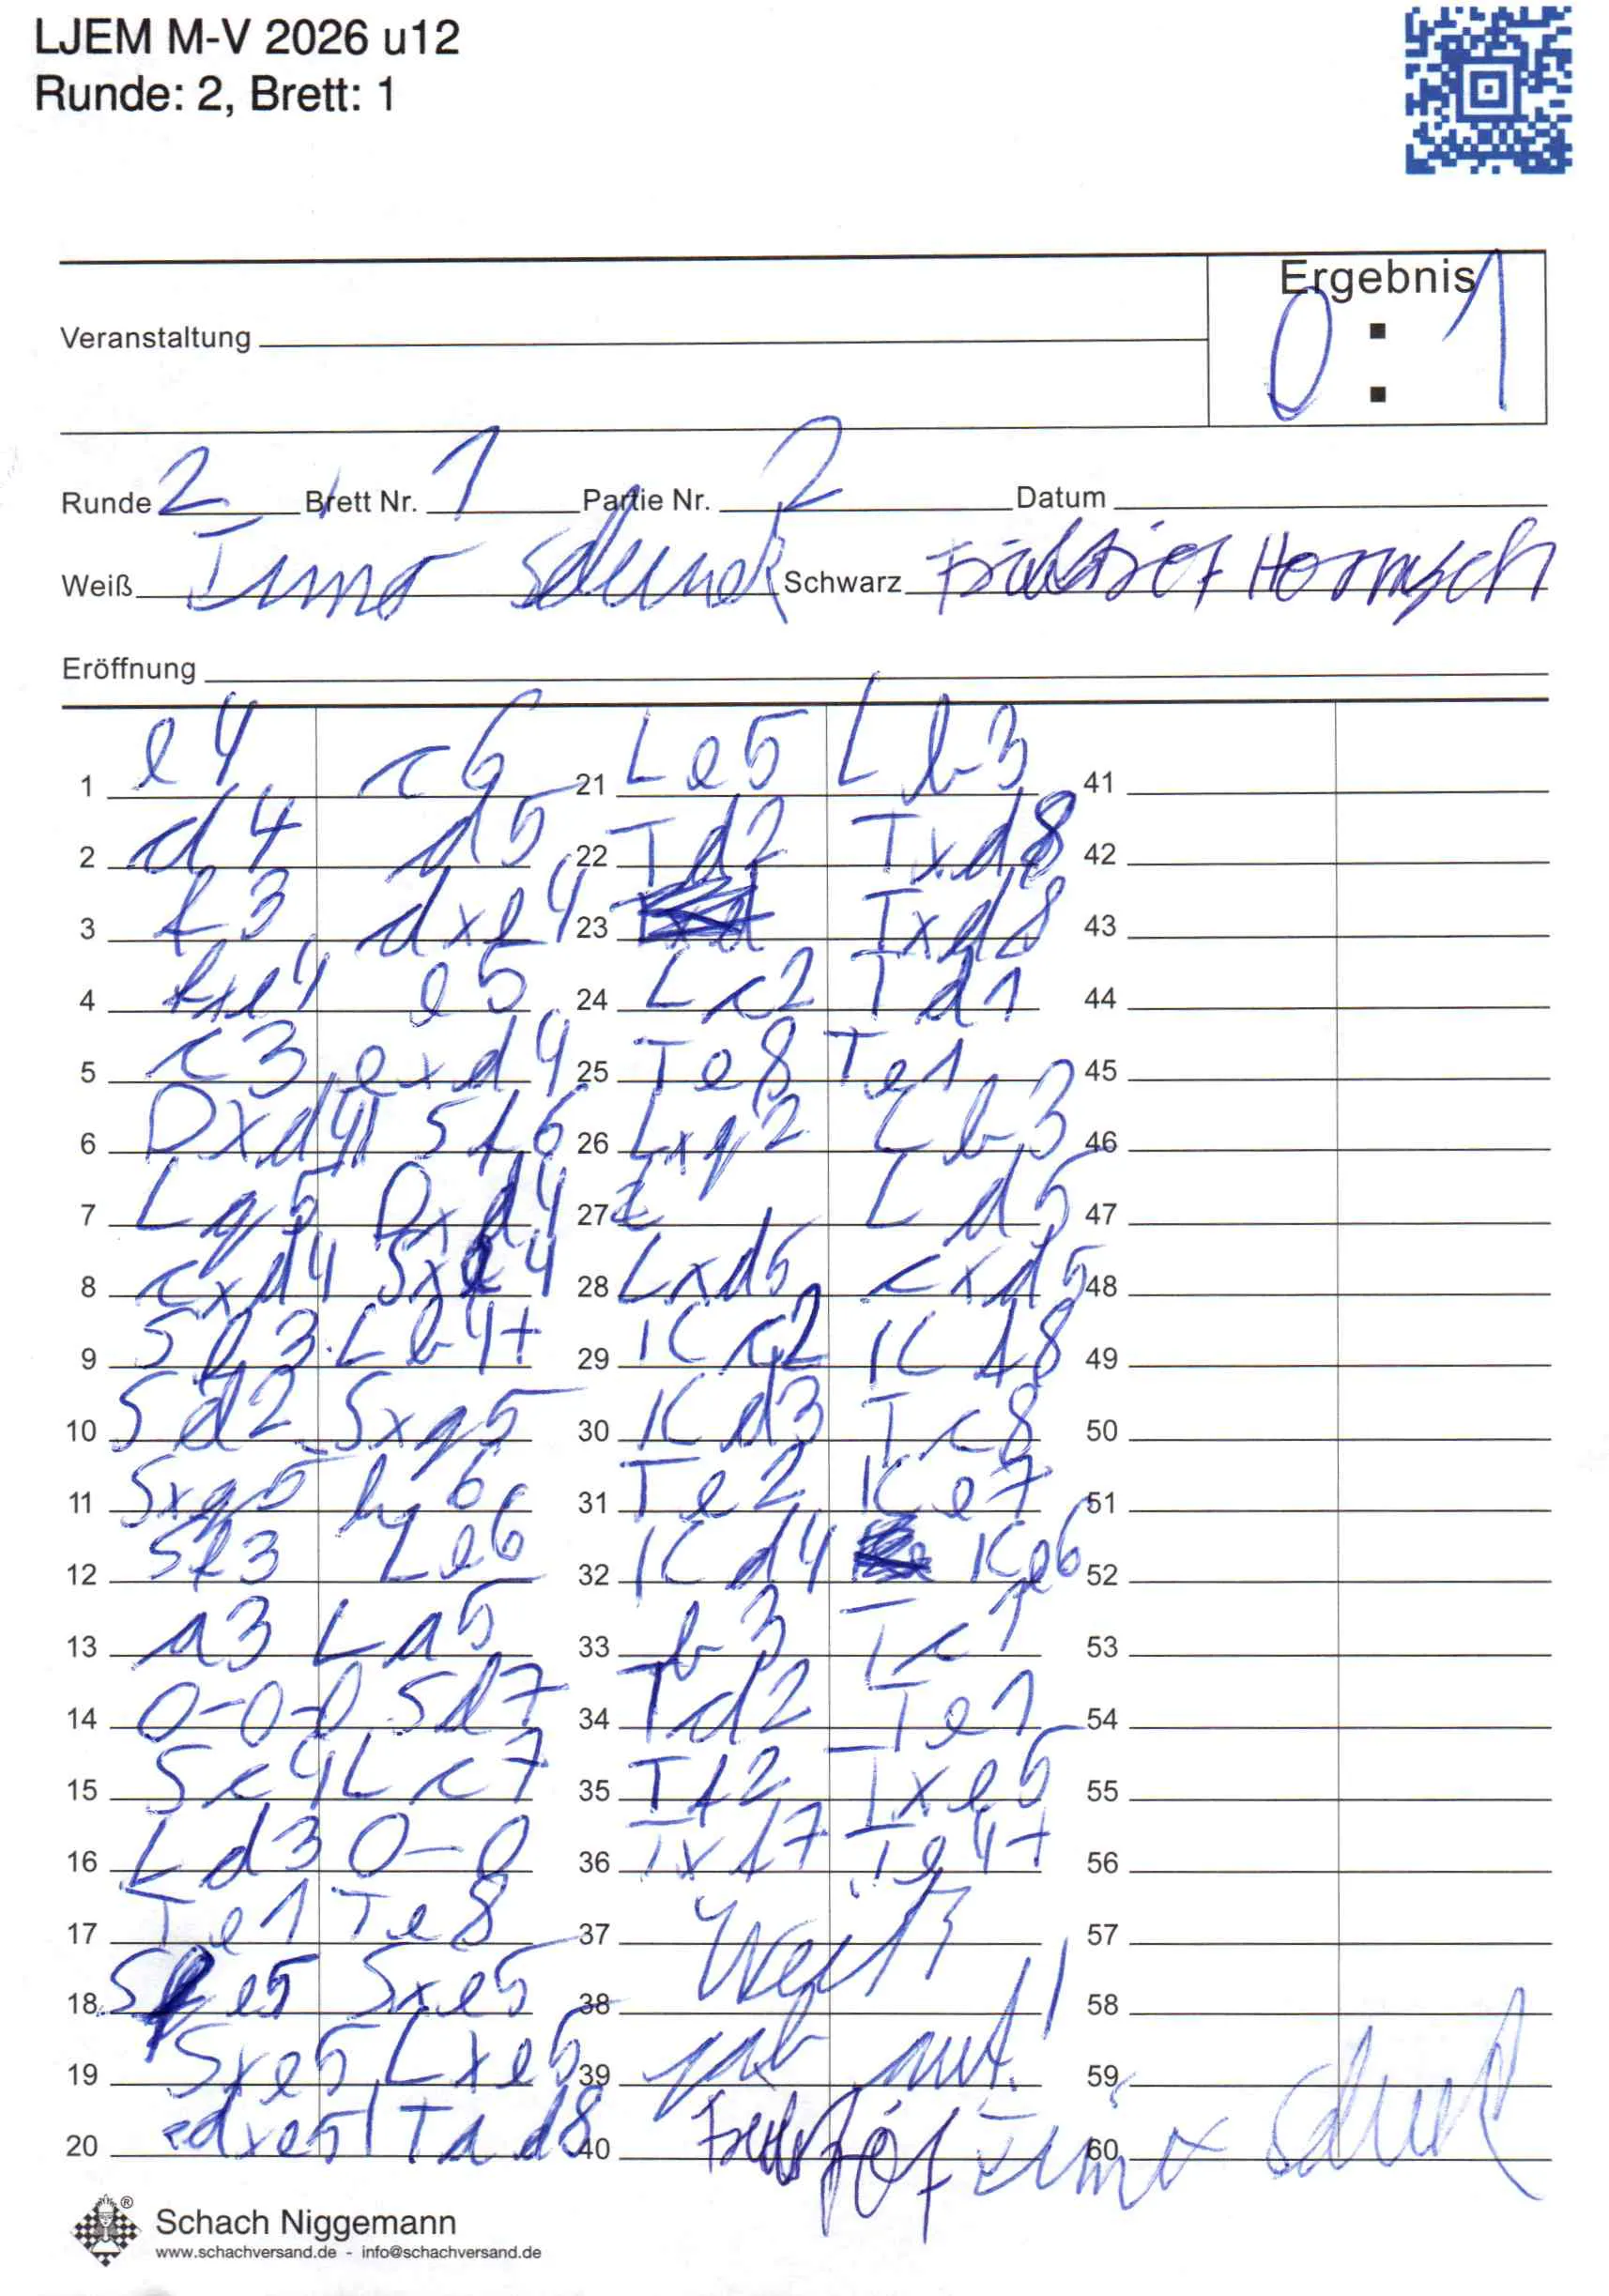 LJEM M-V 2026 u12
Runde: 2, Brett: 1
Ergebnis
0 : 1
Veranstaltung
Runde 2 Brett Nr. 1 Partie Nr. 2 Datum
Weiß Timo Schwarz Hornisch
Eröffnung
1 e4 c6 21 Le5 Lb3 41
2 d4 d5 22 Td2 Txd8 42
3 f3 dxe4 23 Txd8 43
4 fxe4 e5 24 Lc2 Td1 44
5 c3 exd4 25 Te8 Te1 45
6 Dxd4 Sf6 26 Lxg2 Lb3 46
7 Lg5 Dxd4 27 Ld5 47
8 cxd4 Sxe4 28 Lxd5 cxd5 48
9 Sf3 Lb4+ 29 Kc2 Kf8 49
10 Sd2 Sxg5 30 Kd3 Tc8 50
11 Sxg5 h6 31 Te2 Ke7 51
12 Sf3 Le6 32 Kd4 Ke6 52
13 a3 La5 33 b3 Tc1 53
14 0-0-0 Sd7 34 Td2 Te1 54
15 Sc4 Lc7 35 Tf2 Txe5 55
16 Ld3 0-0 36 Txf7 Te4+ 56
17 Te1 Te8 37 Weiß 57
18 Se5 Sxe5 38 58
19 Sxe5 Lxe5 39 gab auf! 59
20 dxe5 Tad8 40 Timo 60
Schach Niggemann
www.schachversand.de - info@schachversand.de